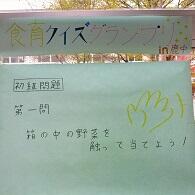 食育クイズグランプリ
in 府中
初級問題
第一問
箱の中の野菜を
触って当てよう！